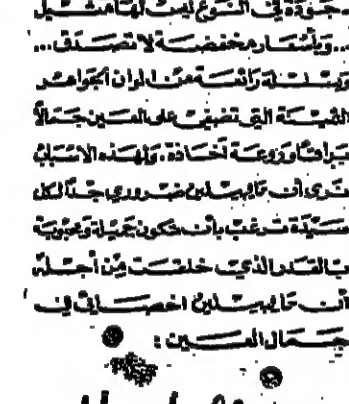 جودة في النوع ليس لها مثيل
.. وبأسعار مخفضة لا تصدق...
رائعة من ألوان الجواهر
الثمينة التي تضفي على العين جمالاً
براقاً وروعة أخاذة. ولهذه الأسباب
ترى أن مابيسلين ضروري جداً لكل
سيدة ترغب بأن تكون جميلة ومحبوبة
بالقدر الذي خلقت من أجله
أن مابيسلين اخصائي في
جمال العين :